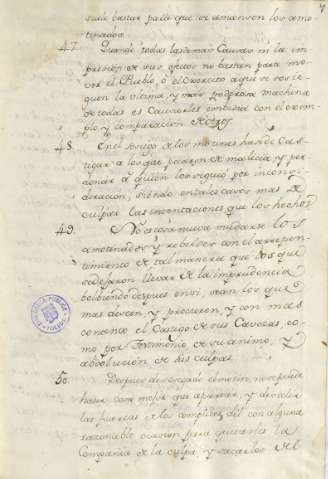 suele bastar para que se amansen los amotinados.
47. Quando todas las demas Causas ni la impresion de sus efectos no bastan para mover el Pueblo, ò el Exercito a que se sosieguen la ultima, y mas poderosa machina de todas es Causarles embidia con el exemplo y comparacion de otros.
48. En el Castigo de los motines hase de Castigar a los que pecaron de malicia y perdonar a quien los siguio por inconsideracion, siendo en tales casos mas de culpar las intentaciones que los hechos
49. No es cosa nueva mudarse los amotinados y rebeldes con el arrepentimiento de tal manera que los que se dejaron llevar de la imprudencia bolbiendo despues en si, sean los que mas deseen, y procuren, y con mas el Castigo de sus Cavezas, como por testimonio de su animo, y absolucion de sus culpas
50. Despues de sosegado el motin, no se puede hacer cosa mejor que apartar, y dividir las fuerzas de los complices del con alguna razonable ocasion para quitarles la Compañia de la culpa, y sacarlos del